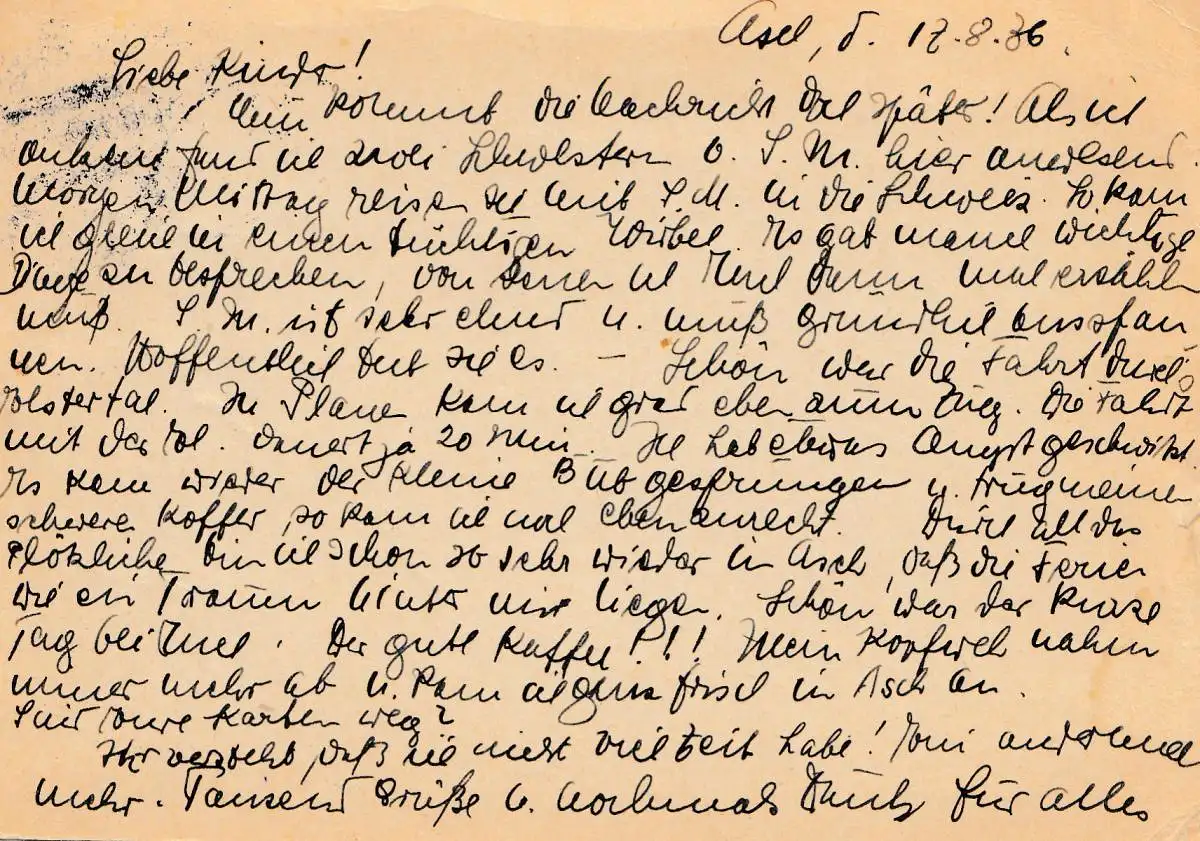 Asch, d. 17.8.36.
Liebe Kinder!
Nun kommt die Nachricht doch später! Als ich
ankam fand ich zwei Schwestern u. S. M. hier anwesend.
Morgen Mittag reisen sie mit S. M. in die Schweiz. So kam
ich gleich in einen tüchtigen Wirbel. Es gab manch wichtige
Dinge zu besprechen, von denen ich Euch dann mal erzählen
muß. S. M. ist sehr elend u. muß gründlich ausspan
nen. Hoffentlich tut sie es. – Schön war die Fahrt durch's
Elstertal. In Plauen kam ich grad eben zum Zug. Die Fahrt
mit der El. dauert ja 20 Min. Ich hab etwas Angst geschwitzt.
Es kam wieder der kleine Bub gesprungen u. trug meinen
schweren Koffer, so kam ich noch eben zurecht. Durch all das
Plötzliche bin ich schon so sehr wieder in Asch, daß die Ferien
wie ein Traum hinter mir liegen. Schön war der kurze
Tag bei Euch. Der gute Kaffee!!! Mein Kopfweh nahm
immer mehr ab u. kam ich ganz frisch in Asch an.
Sind Eure Karten weg?
Ihr verzeiht, daß ich nicht viel Zeit habe! Ein andermal
mehr. Tausend Grüße u. nochmals Dank für alles